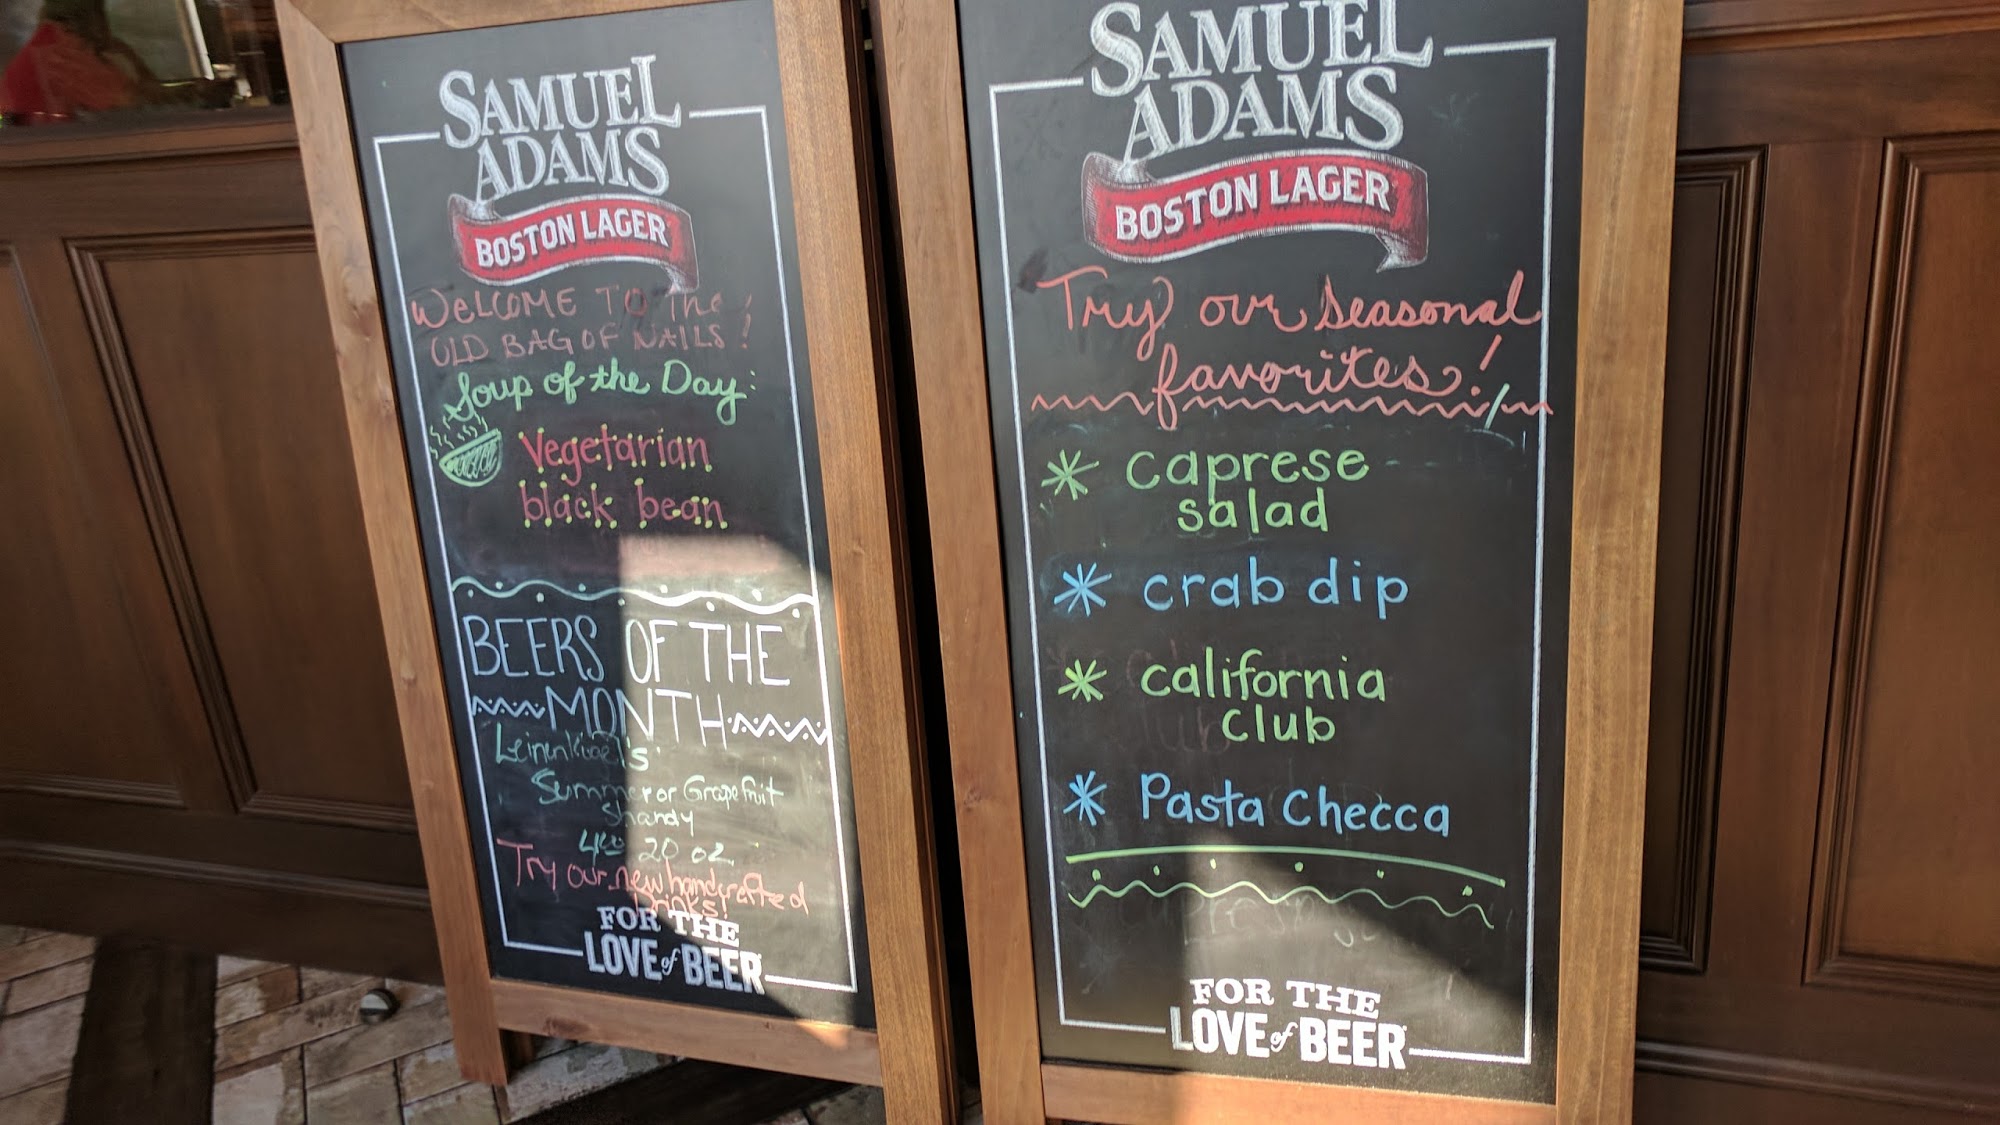 SAMUEL
ADAMS
BOSTON LAGER
WELCOME TO The
OLD BAG OF NAILS!
Soup of the Day:
Vegetarian
black bean
BEERS OF THE
MONTH
Leinenkugel's
Summer or Grapefruit
Shandy
4.00 20 oz
Try our new handcrafted
Drinks!
FOR THE
LOVE of BEER
SAMUEL
ADAMS
BOSTON LAGER
Try our seasonal
favorites!
caprese
salad
crab dip
california
club
Pasta Checca
FOR THE
LOVE of BEER